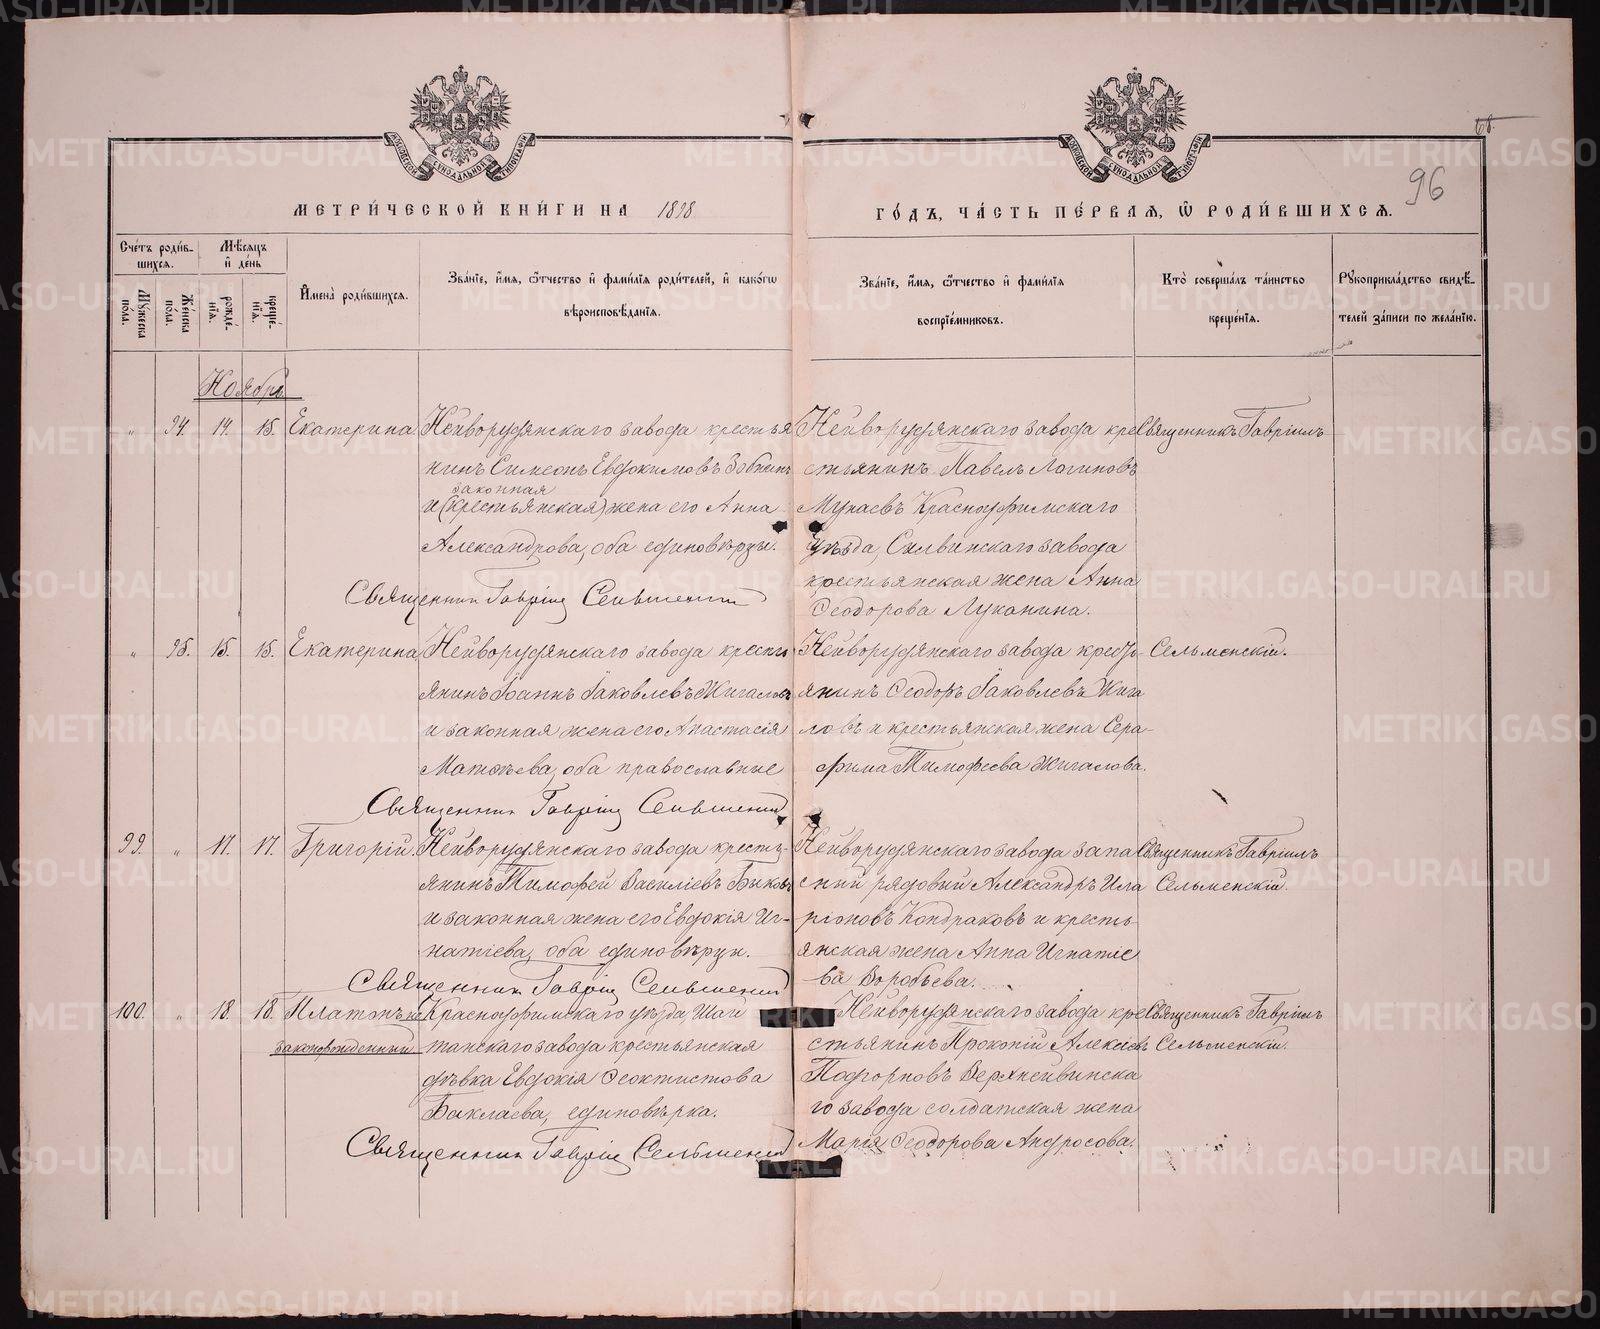 МЕТРИ́ЧЕСКОЙ КНИ́ГИ НА 1898
ГО́ДЪ, ЧА́СТЬ ПЕ́РВАЯ, Ѿ РОДИ́ВШИХСЯ.
68.
96
Сче́тъ роди́в-
шихся.
Мѣ́сяцъ
и҆ де́нь
Му́жеска по́ла.
Же́нска по́ла.
рожде́-
нїя.
креще́-
нїя.
И҆мена̀ роди́вшихся.
Зва́нїе, и҆́мя, ѻ҆́тчество и҆ фами́лїя роди́телей, и҆ како́гѡ
вѣроисповѣ́данїя.
Зва́нїе, и҆́мя, ѻ҆́тчество и҆ фами́лїя
воспрїе́мниковъ.
Кто̀ соверша́лъ та́инство
креще́нїя.
Рꙋкоприкла́дство свидѣ́-
телей за́писи по жела́нїю.
Ноябрь
„ 94. 14. 15. Екатерина.
Нейворудянскаго завода крестья
нинъ Симеонъ Евдокимовъ Зобнинъ
законная
и (крестьянская) жена его Анна
Александрова, оба единовѣрцы.
Священник Гавріил Сельменский
Нейворудянскаго завода кре
стьянинъ Павелъ Логиновъ
Мунаевъ Красноуфимскаго
уѣзда, Силвинскаго завода
крестьянская жена Анна
Ѳеодорова Луканина.
Священникъ Гавріилъ
„ 95. 15. 15. Екатерина
Нейворудянскаго завода кресть
янинъ Іоаннъ Іаковлевъ Жигаловъ
и законная жена его Анастасія
Матѳѣева, оба православные
Священник Гавріил Сельменский
Нейворудянскаго завода кресть
янинъ Ѳеодоръ Іаковлевъ Жига
ловъ и крестьянская жена Сера-
фима Тимофеева Жигалова.
Сельменскій.
99. „ 17. 17. Григорій.
Нейворудянскаго завода кресть-
янинъ Тимофей Василіевъ Быковъ
и законная жена его Евдокія Иг-
натіева, оба единовѣрцы.
Священник Гавріил Сельменский
Нейворудянскаго завода запа
сный рядовый Александръ Ила
ріоновъ Кондраковъ и кресть-
янская жена Анна Игнатіе
ва Воробьева.
Священникъ Гавріилъ
Сельменскій.
100. „ 18. 18. Платонъ не
законорожденный
Красноуфимскаго уѣзда, Шай
танскаго завода крестьянская
дѣвка Евдокія Ѳеоктистова
Баклаева, единовѣрка.
Священник Гавріил Сельменский
Нейворудянскаго завода кре
стьянинъ Прокопій Алексѣевъ
Подгорновъ Верхнейвинска
го завода солдатская жена
Марія Ѳеодорова Андросова.
Священникъ Гавріилъ
Сельменскій.
METRIKI.GASO-URAL.RU